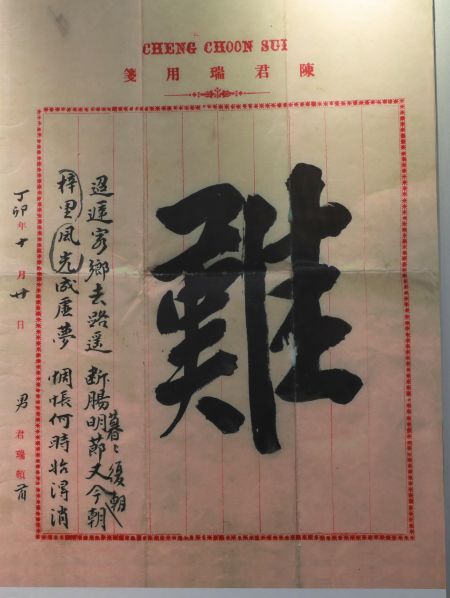 CHENG CHOON SUI
陳君瑞用箋
難
迢遞客鄉去路遥 断腸明節又今朝
暮〻復朝〻
梓里風光成虚夢 惆悵何時始得消
丁卯年十月廿日 男 君瑞頓首